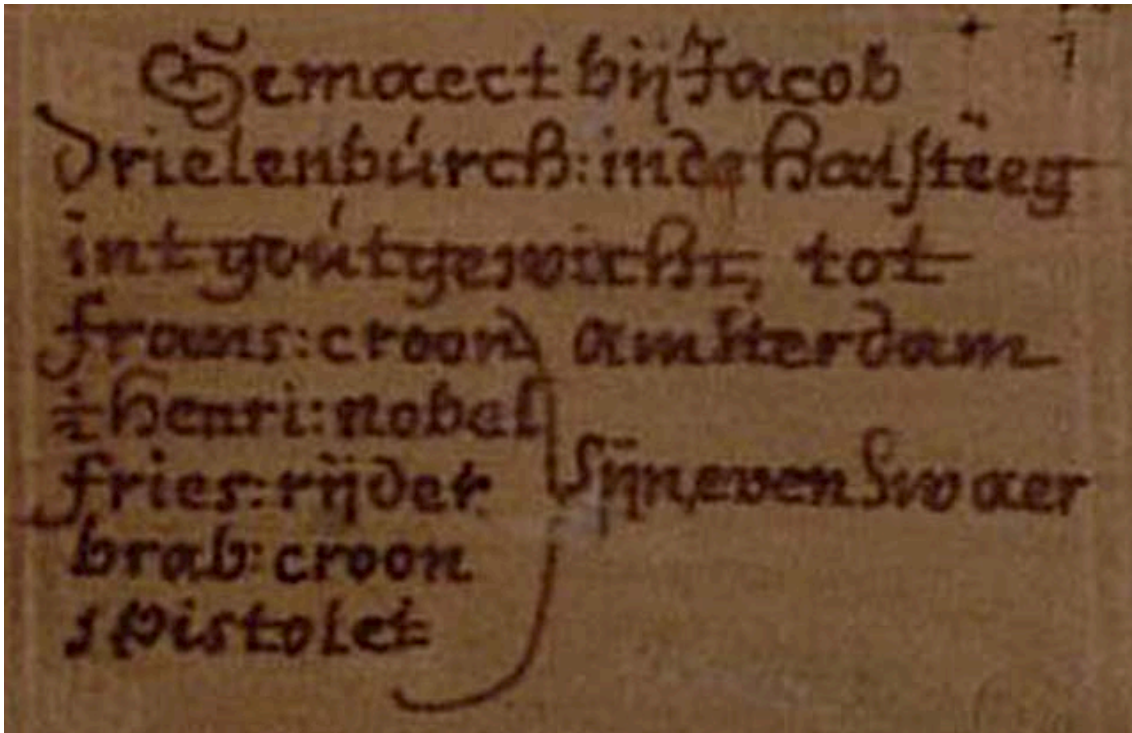 Gemaect bij Jacob
Drielenbúrch: inde halsteeg
int goútgewicht, tot
frans: croon amsterdam
½ henri: nobel
fries: rijder sijn, even swaer
brab: croon
s pistolet